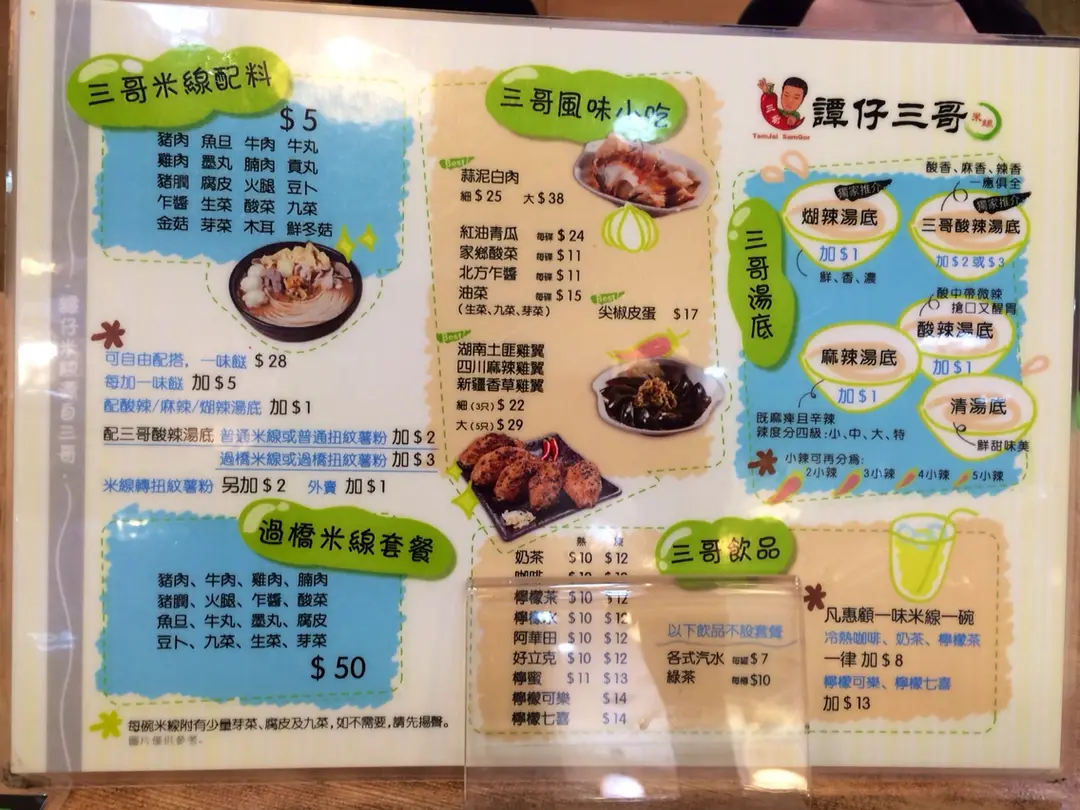 三哥米線配料
$5
豬肉 魚旦 牛肉 牛丸
雞肉 墨丸 腩肉 貢丸
豬膶 腐皮 火腿 豆卜
乍醬 生菜 酸菜 九菜
金菇 芽菜 木耳 鮮冬菇
可自由配搭,一味餸 $28
每加一味餸 加$5
配酸辣/麻辣/煳辣湯底 加$1
配三哥酸辣湯底 普通米線或普通扭紋薯粉 加$2
過橋米線或過橋扭紋薯粉 加$3
米線轉扭紋薯粉 另加$2 外賣 加$1
過橋米線套餐
豬肉、牛肉、雞肉、腩肉
豬膶、火腿、乍醬、酸菜
魚旦、牛丸、墨丸、腐皮
豆卜、九菜、生菜、芽菜
$50
每碗米線附有少量芽菜、腐皮及九菜,如不需要,請先揚聲。
圖片僅供參考。
三哥風味小吃
Best
蒜泥白肉
細$25 大$38
紅油青瓜 每碟 $24
家鄉酸菜 每碟 $11
北方乍醬 每碟 $11
油菜 每碟 $15
(生菜、九菜、芽菜)
Best
尖椒皮蛋 $17
Best
湖南土匪雞翼
四川麻辣雞翼
新疆香草雞翼
細(3只) $22
大(5只) $29
譚仔三哥米線
TamJai SamGor
三哥湯底
煳辣湯底
獨家推介
加$1
鮮、香、濃
酸香、麻香、辣香
一應俱全
獨家推介
三哥酸辣湯底
加$2或$3
酸中帶微辣
搶口又醒胃
酸辣湯底
加$1
麻辣湯底
加$1
既麻痺且辛辣
辣度分四級:小、中、大、特
小辣可再分為:
2小辣 3小辣 4小辣 5小辣
清湯底
鮮甜味美
三哥飲品
熱
奶茶 $10 $12
咖啡 $10 $12
檸檬茶 $10 $12
檸檬水 $10 $12
阿華田 $10 $12
好立克 $10 $12
檸蜜 $11 $13
檸檬可樂 $14
檸檬七喜 $14
以下飲品不設套餐
各式汽水 每罐 $7
綠茶 每樽 $10
凡惠顧一味米線一碗
冷熱咖啡、奶茶、檸檬茶
一律加$8
檸檬可樂、檸檬七喜
加$13